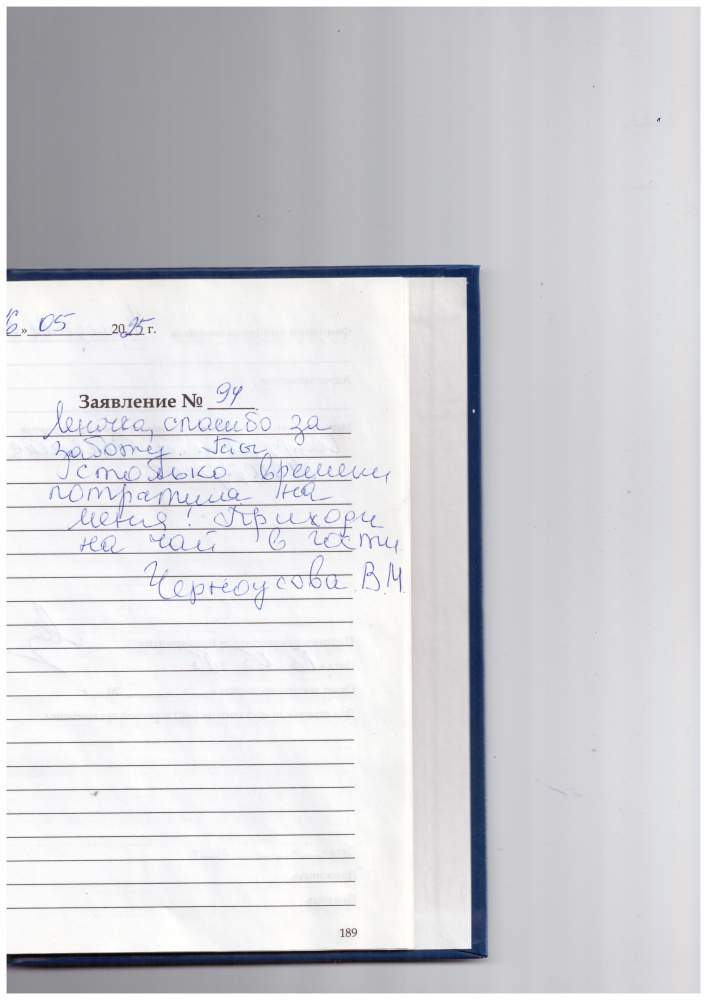 6» 05 2025 г.
Заявление № 94
Леночка, спасибо за
заботу. Ты
столько времени
потратила на
меня! Приходи
на чай в гости
Черноусова В.М.
189